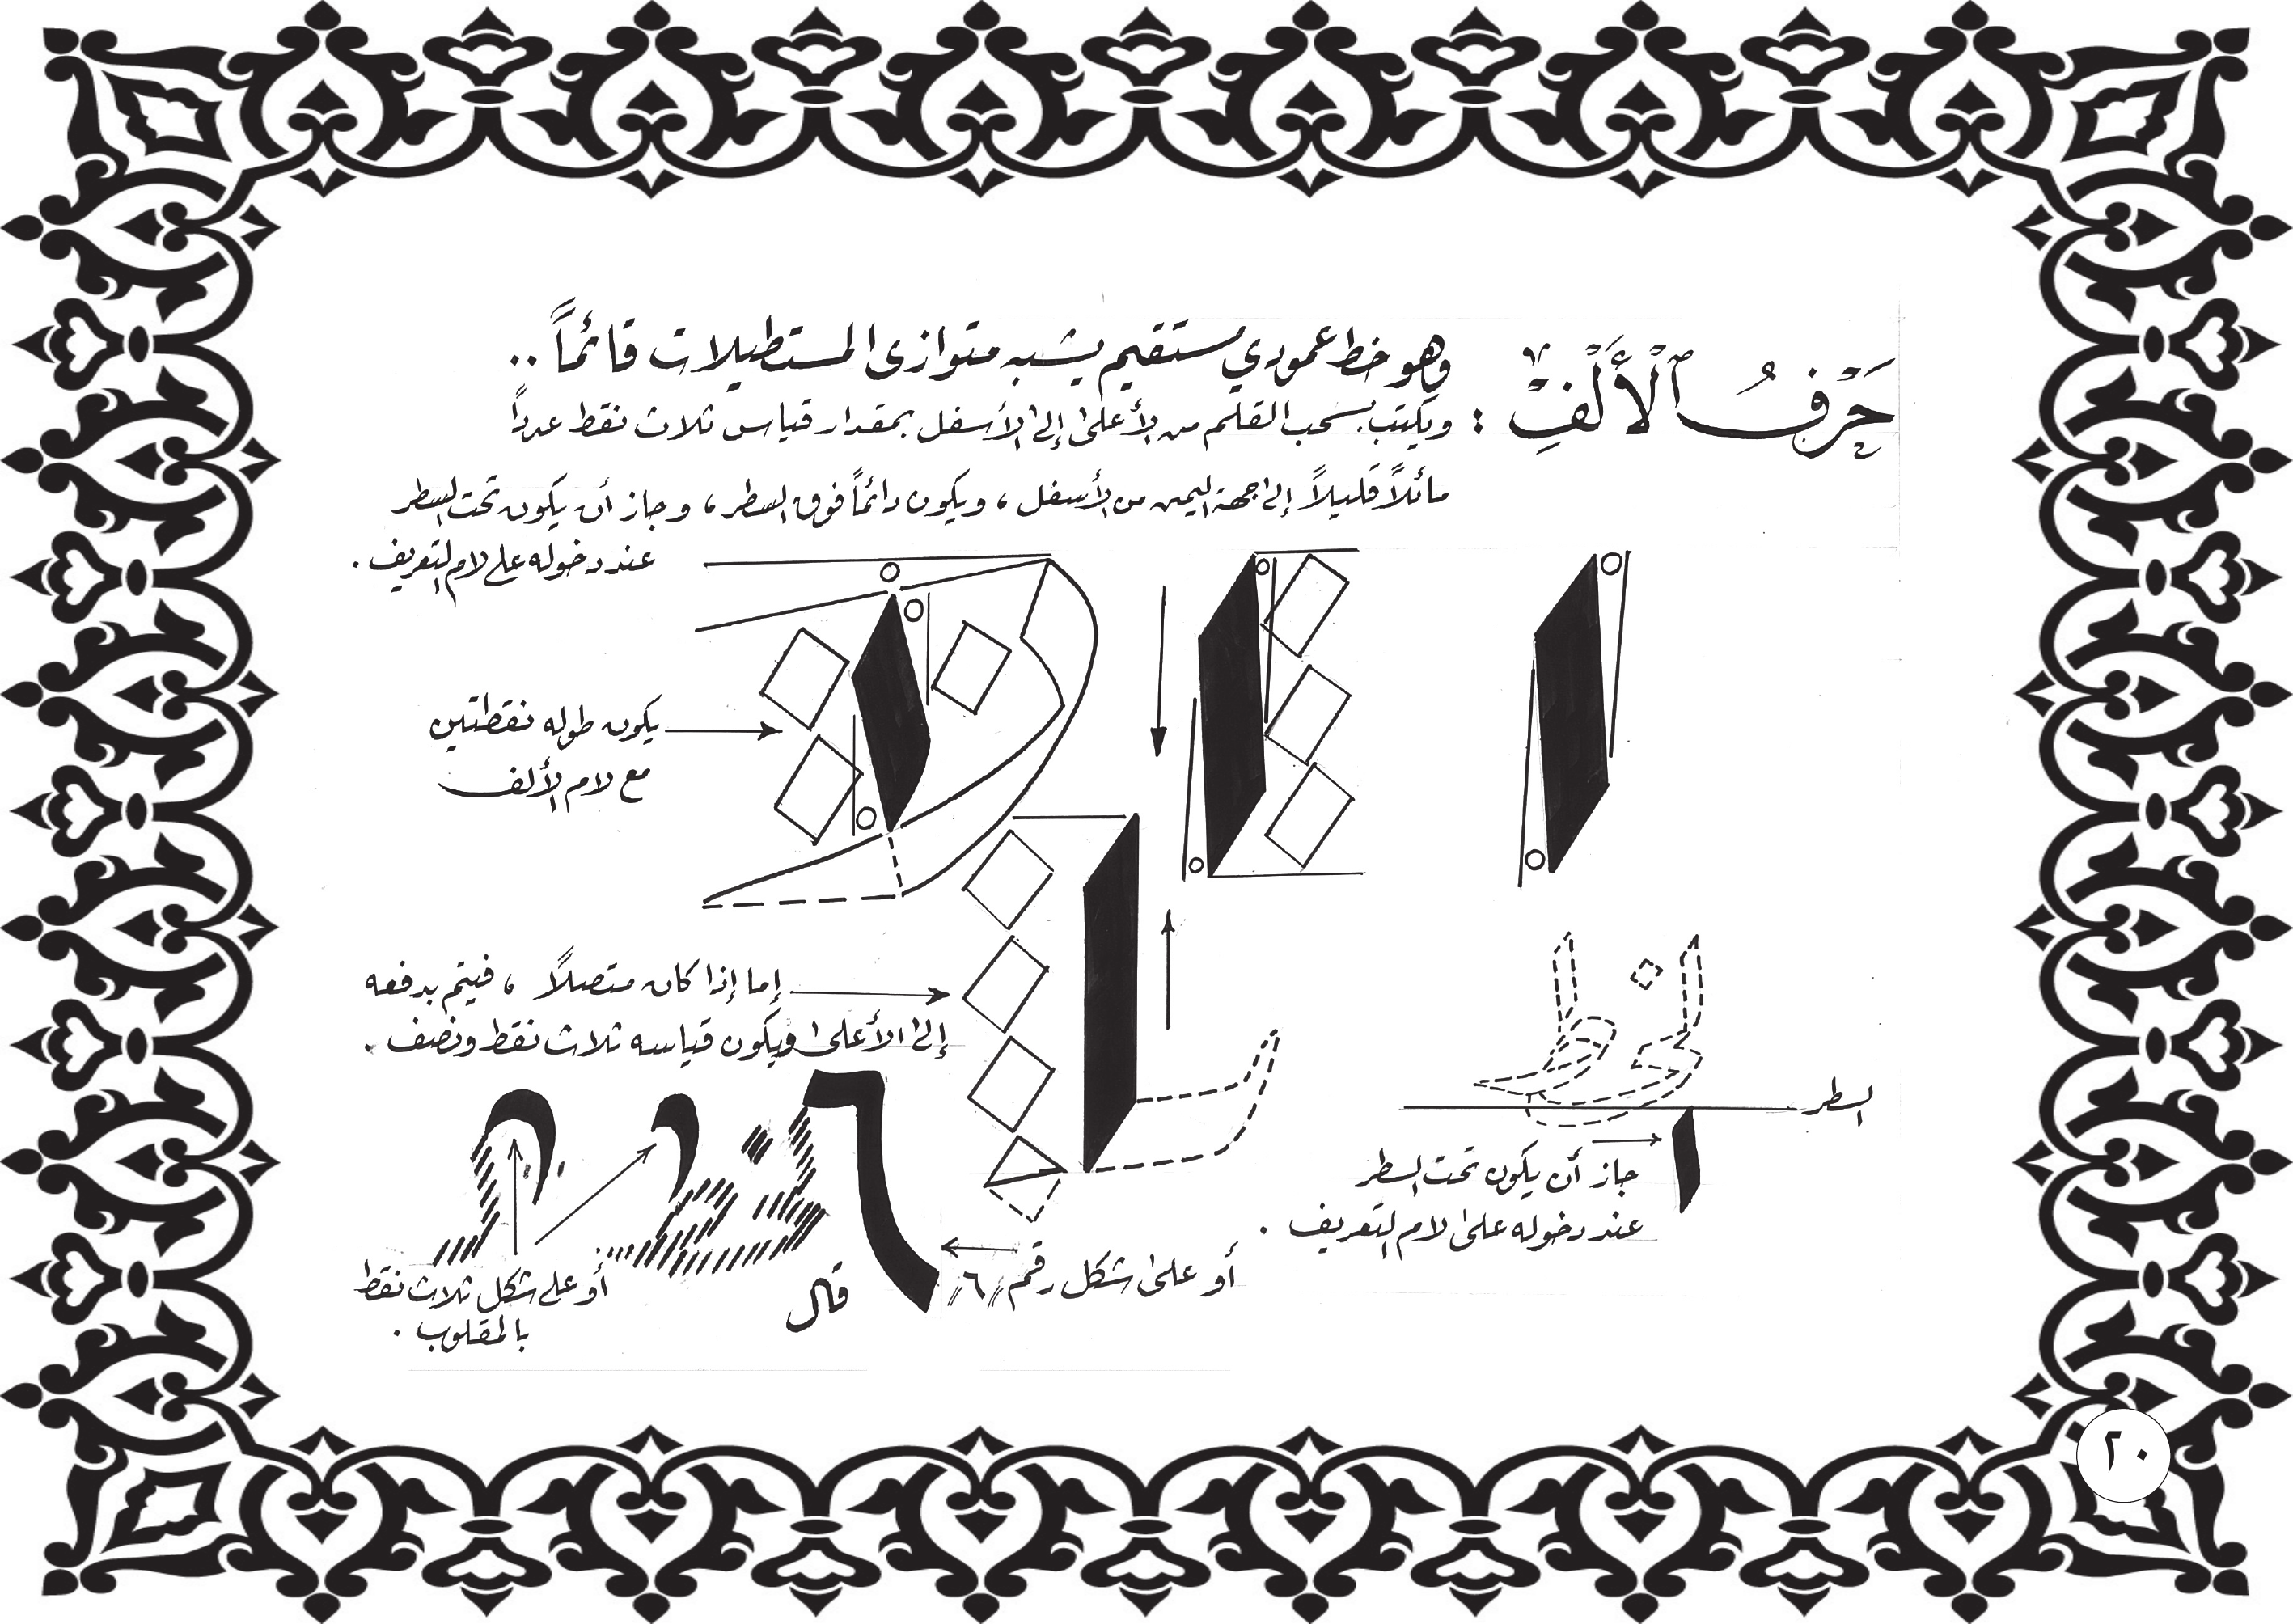 حَرْفُ الْأَلْفِ :
وهو خط عمودي مستقيم يشبه متوازى المستطيلات قائماً ..
ويكتب بسحب القلم من الأعلى إلى الأسفل بمقدار قياس ثلاث نقط عدداً
مائلاً قليلاً إلى جهة اليمين من الأسفل ، ويكون دائماً فوق السطر ، وجاز أن يكون تحت السطر
عند دخوله على لام التعريف .
يكون طوله نقطتين
مع لام الألف
إما إذا كان متصلاً ، فيتم بدفعه
إلى الأعلى ويكون قياسه ثلاث نقط ونصف .
السطر
جاز أن يكون تحت السطر
عند دخوله على لام التعريف .
أو على شكل رقم "٦"
قال
أو على شكل ثلاث نقط
بالمقلوب .
٢٠